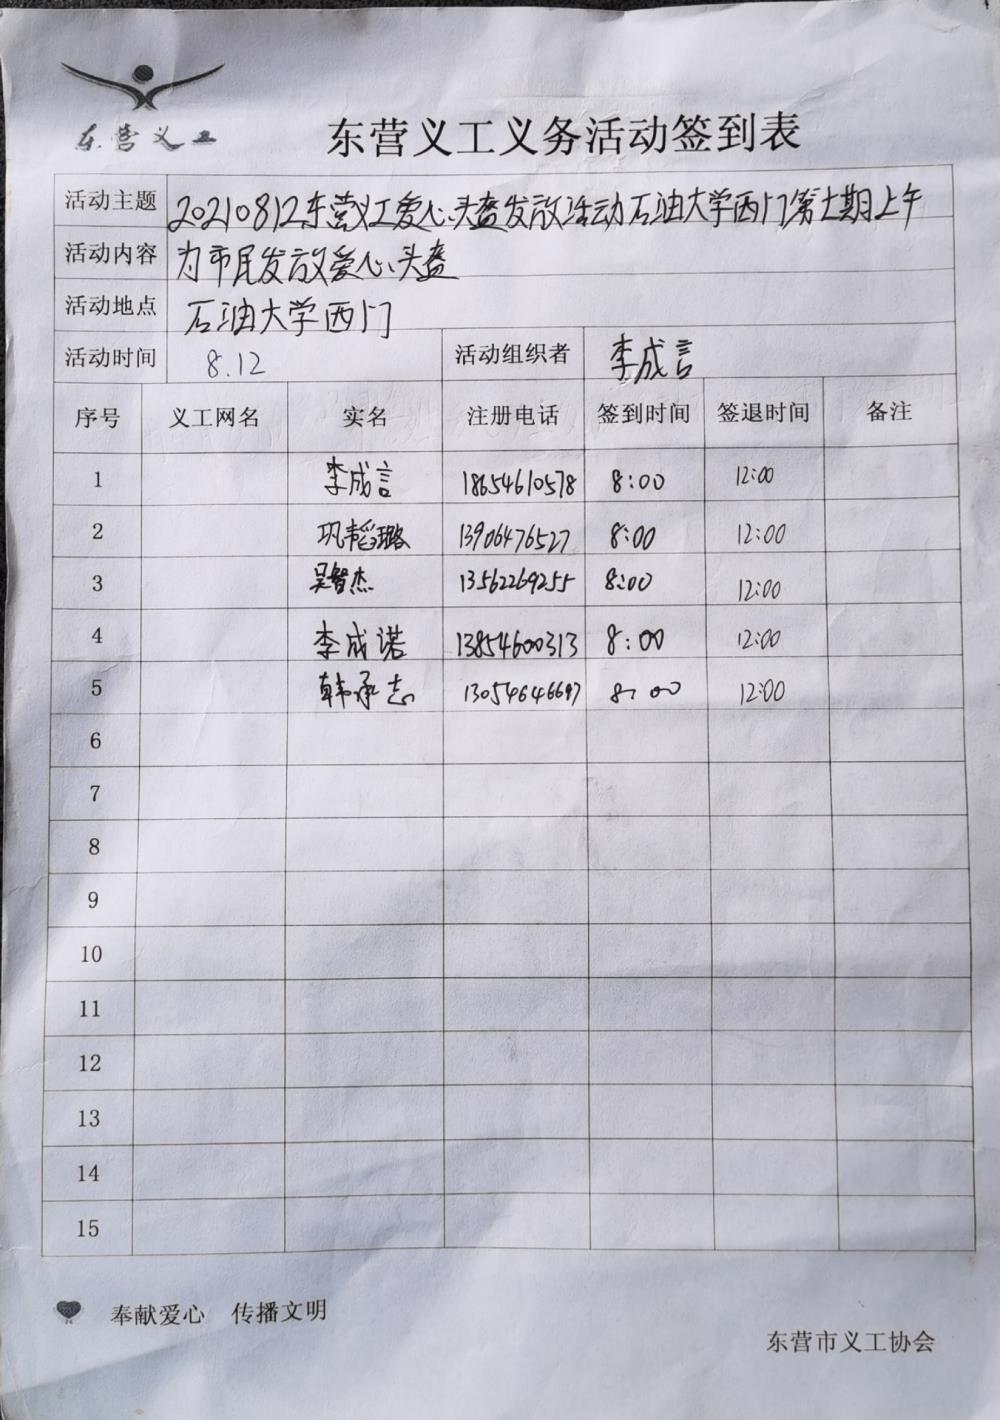 东营义工
东营义工义务活动签到表
活动主题 20210812东营义工爱心头盔发放活动石油大学西门第七期上午
活动内容 为市民发放爱心头盔
活动地点 石油大学西门
活动时间 8.12 活动组织者 李成言
序号 义工网名 实名 注册电话 签到时间 签退时间 备注
1 李成言 18654610578 8:00 12:00
2 巩韬璐 13906476527 8:00 12:00
3 吴智杰 13562269255 8:00 12:00
4 李成诺 13854600313 8:00 12:00
5 韩承志 13054646697 8:00 12:00
6
7
8
9
10
11
12
13
14
15
奉献爱心 传播文明
东营市义工协会